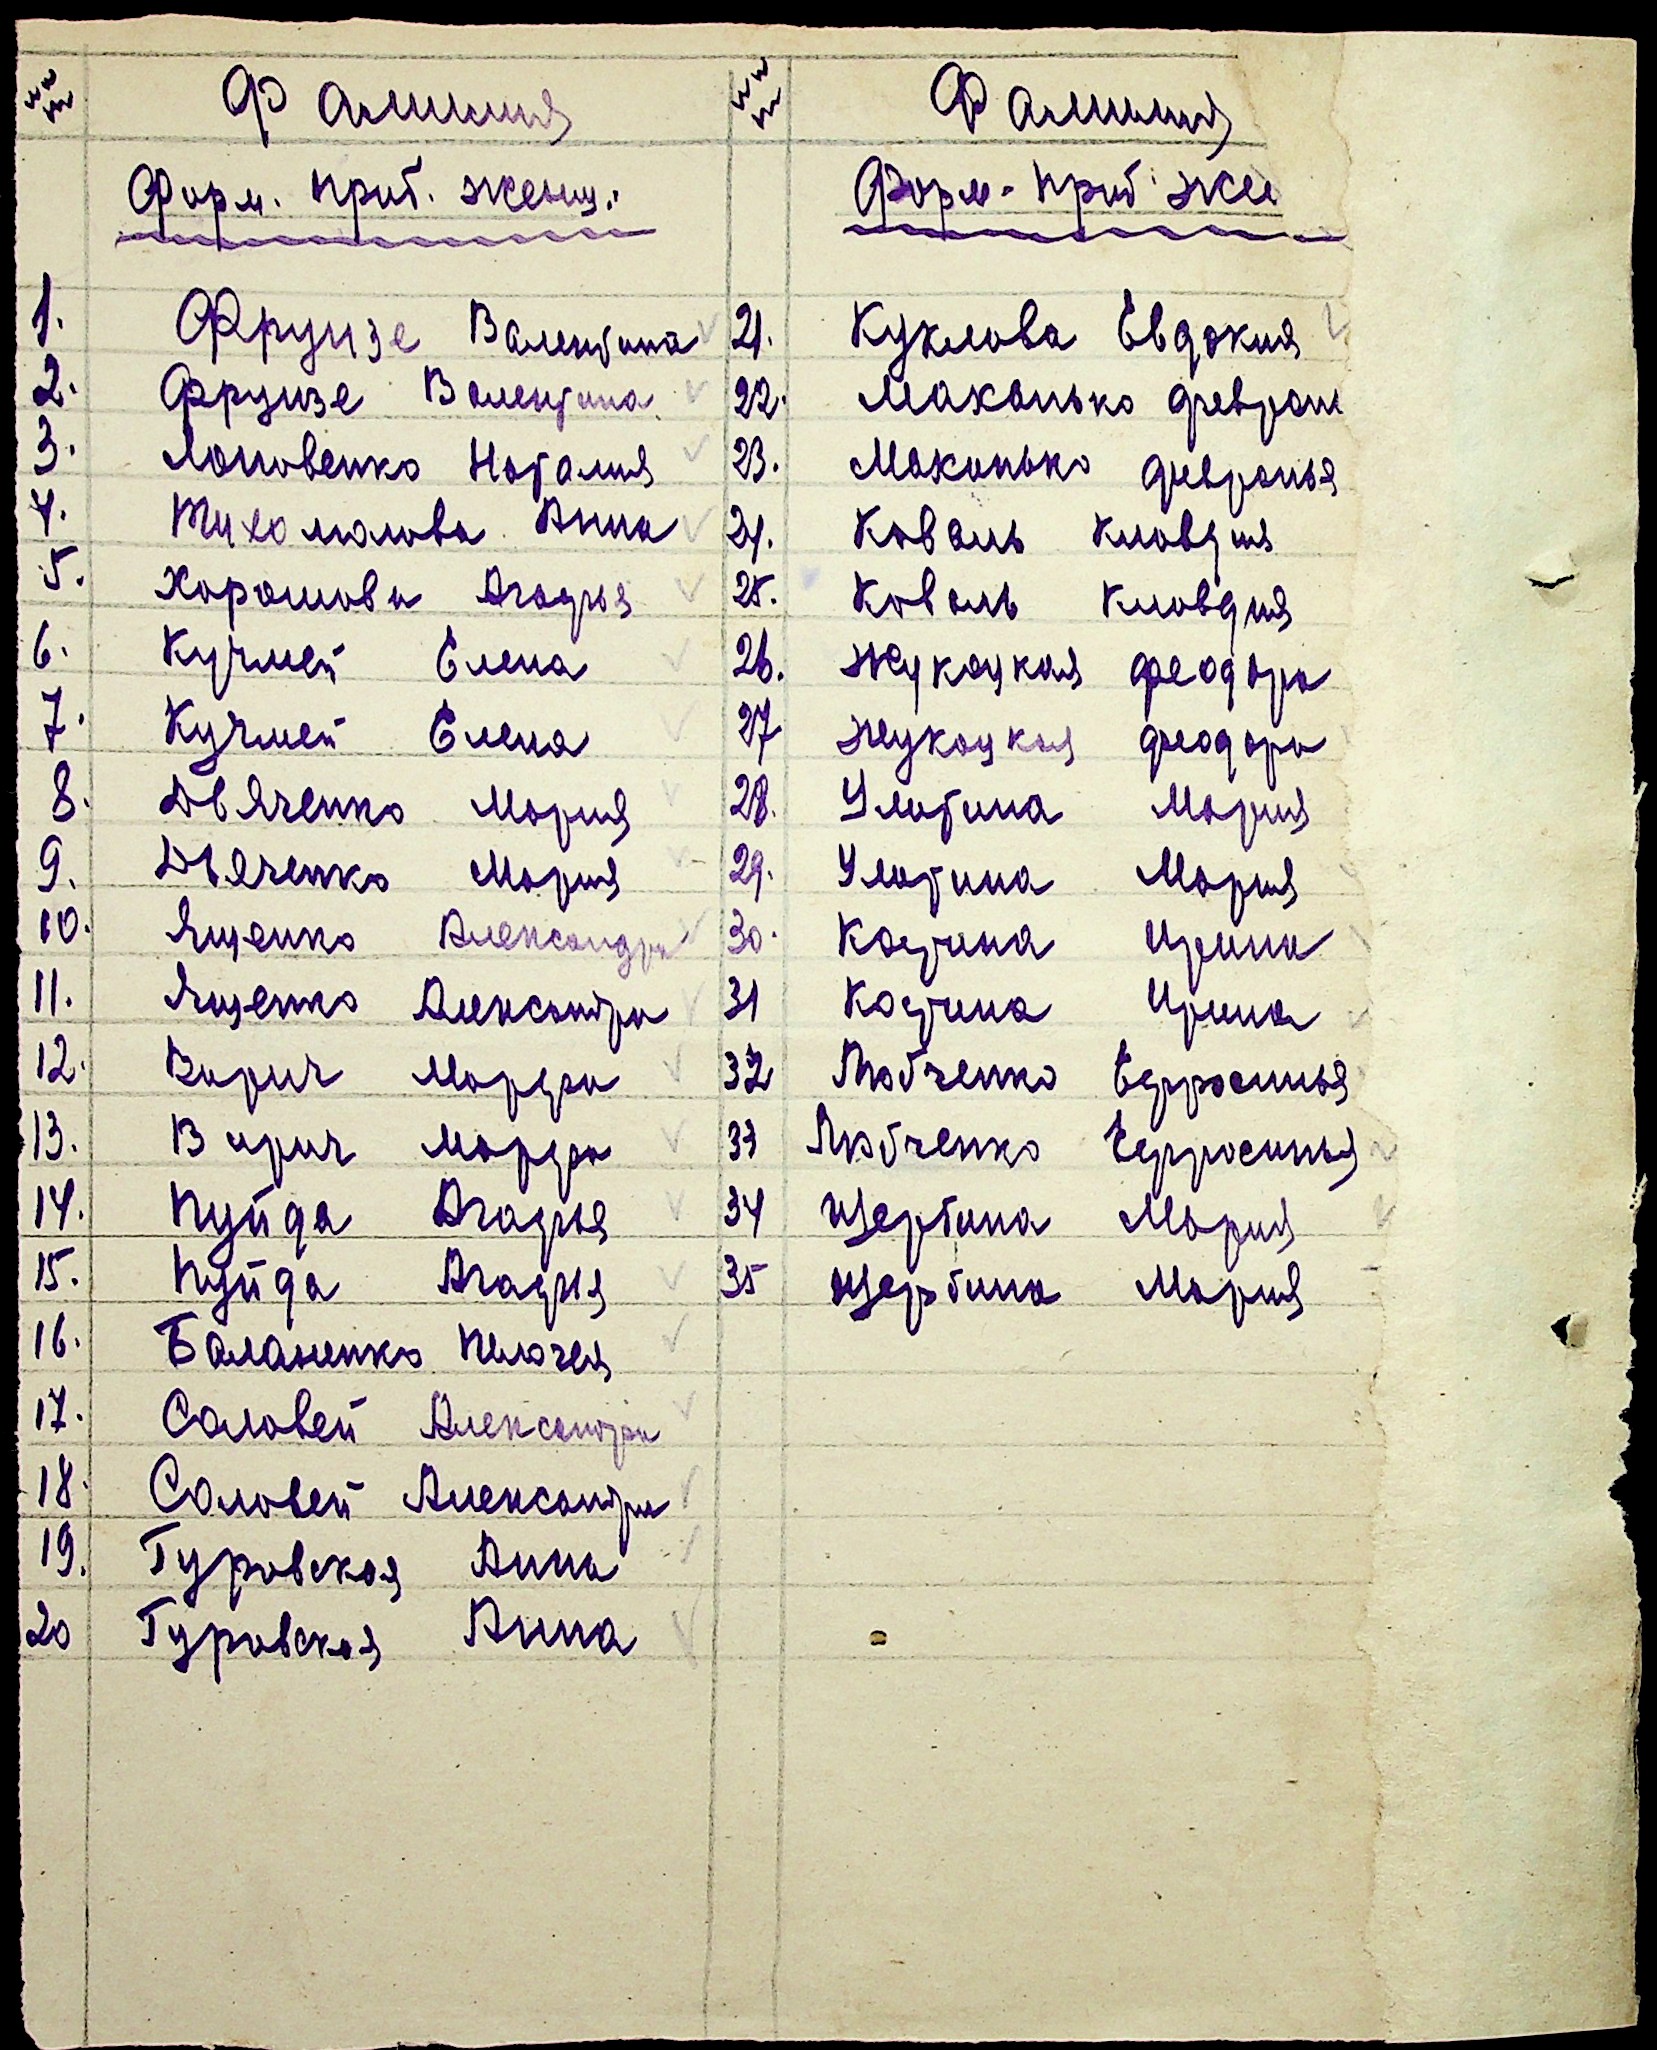 №№ Фамилия
Форм. приб. женщ.
1. Фрунзе Валентина
2. Фрунзе Валентина
3. Лоповенко Наталия
4. Тихомолова Анна
5. Хорошова Агафья
6. Кучмей Елена
7. Кучмей Елена
8. Дьяченко Мария
9. Дьяченко Мария
10. Ященко Александра
11. Ященко Александра
12. Варич Марфа
13. Варич Марфа
14. Пуйда Агафья
15. Пуйда Агафья
16. Баланенко Пелагея
17. Соловей Александра
18. Соловей Александра
19. Гуровская Анна
20 Гуровская Анна
№№ Фамилия
Форм. приб жен
21. Куклова Евдокия
22. Маконько Феврон
23. Маконько Февронья
24. Коваль Клавдия
25. Коваль Клавдия
26. Жукоцкая Феодора
27 Жукоцкая Феодора
28. Улитина Мария
29. Улитина Мария
30. Костина Ирина
31 Костина Ирина
32 Любченко Ефросинья
33 Любченко Ефросинья
34 Щербина Мария
35 Щербина Мария